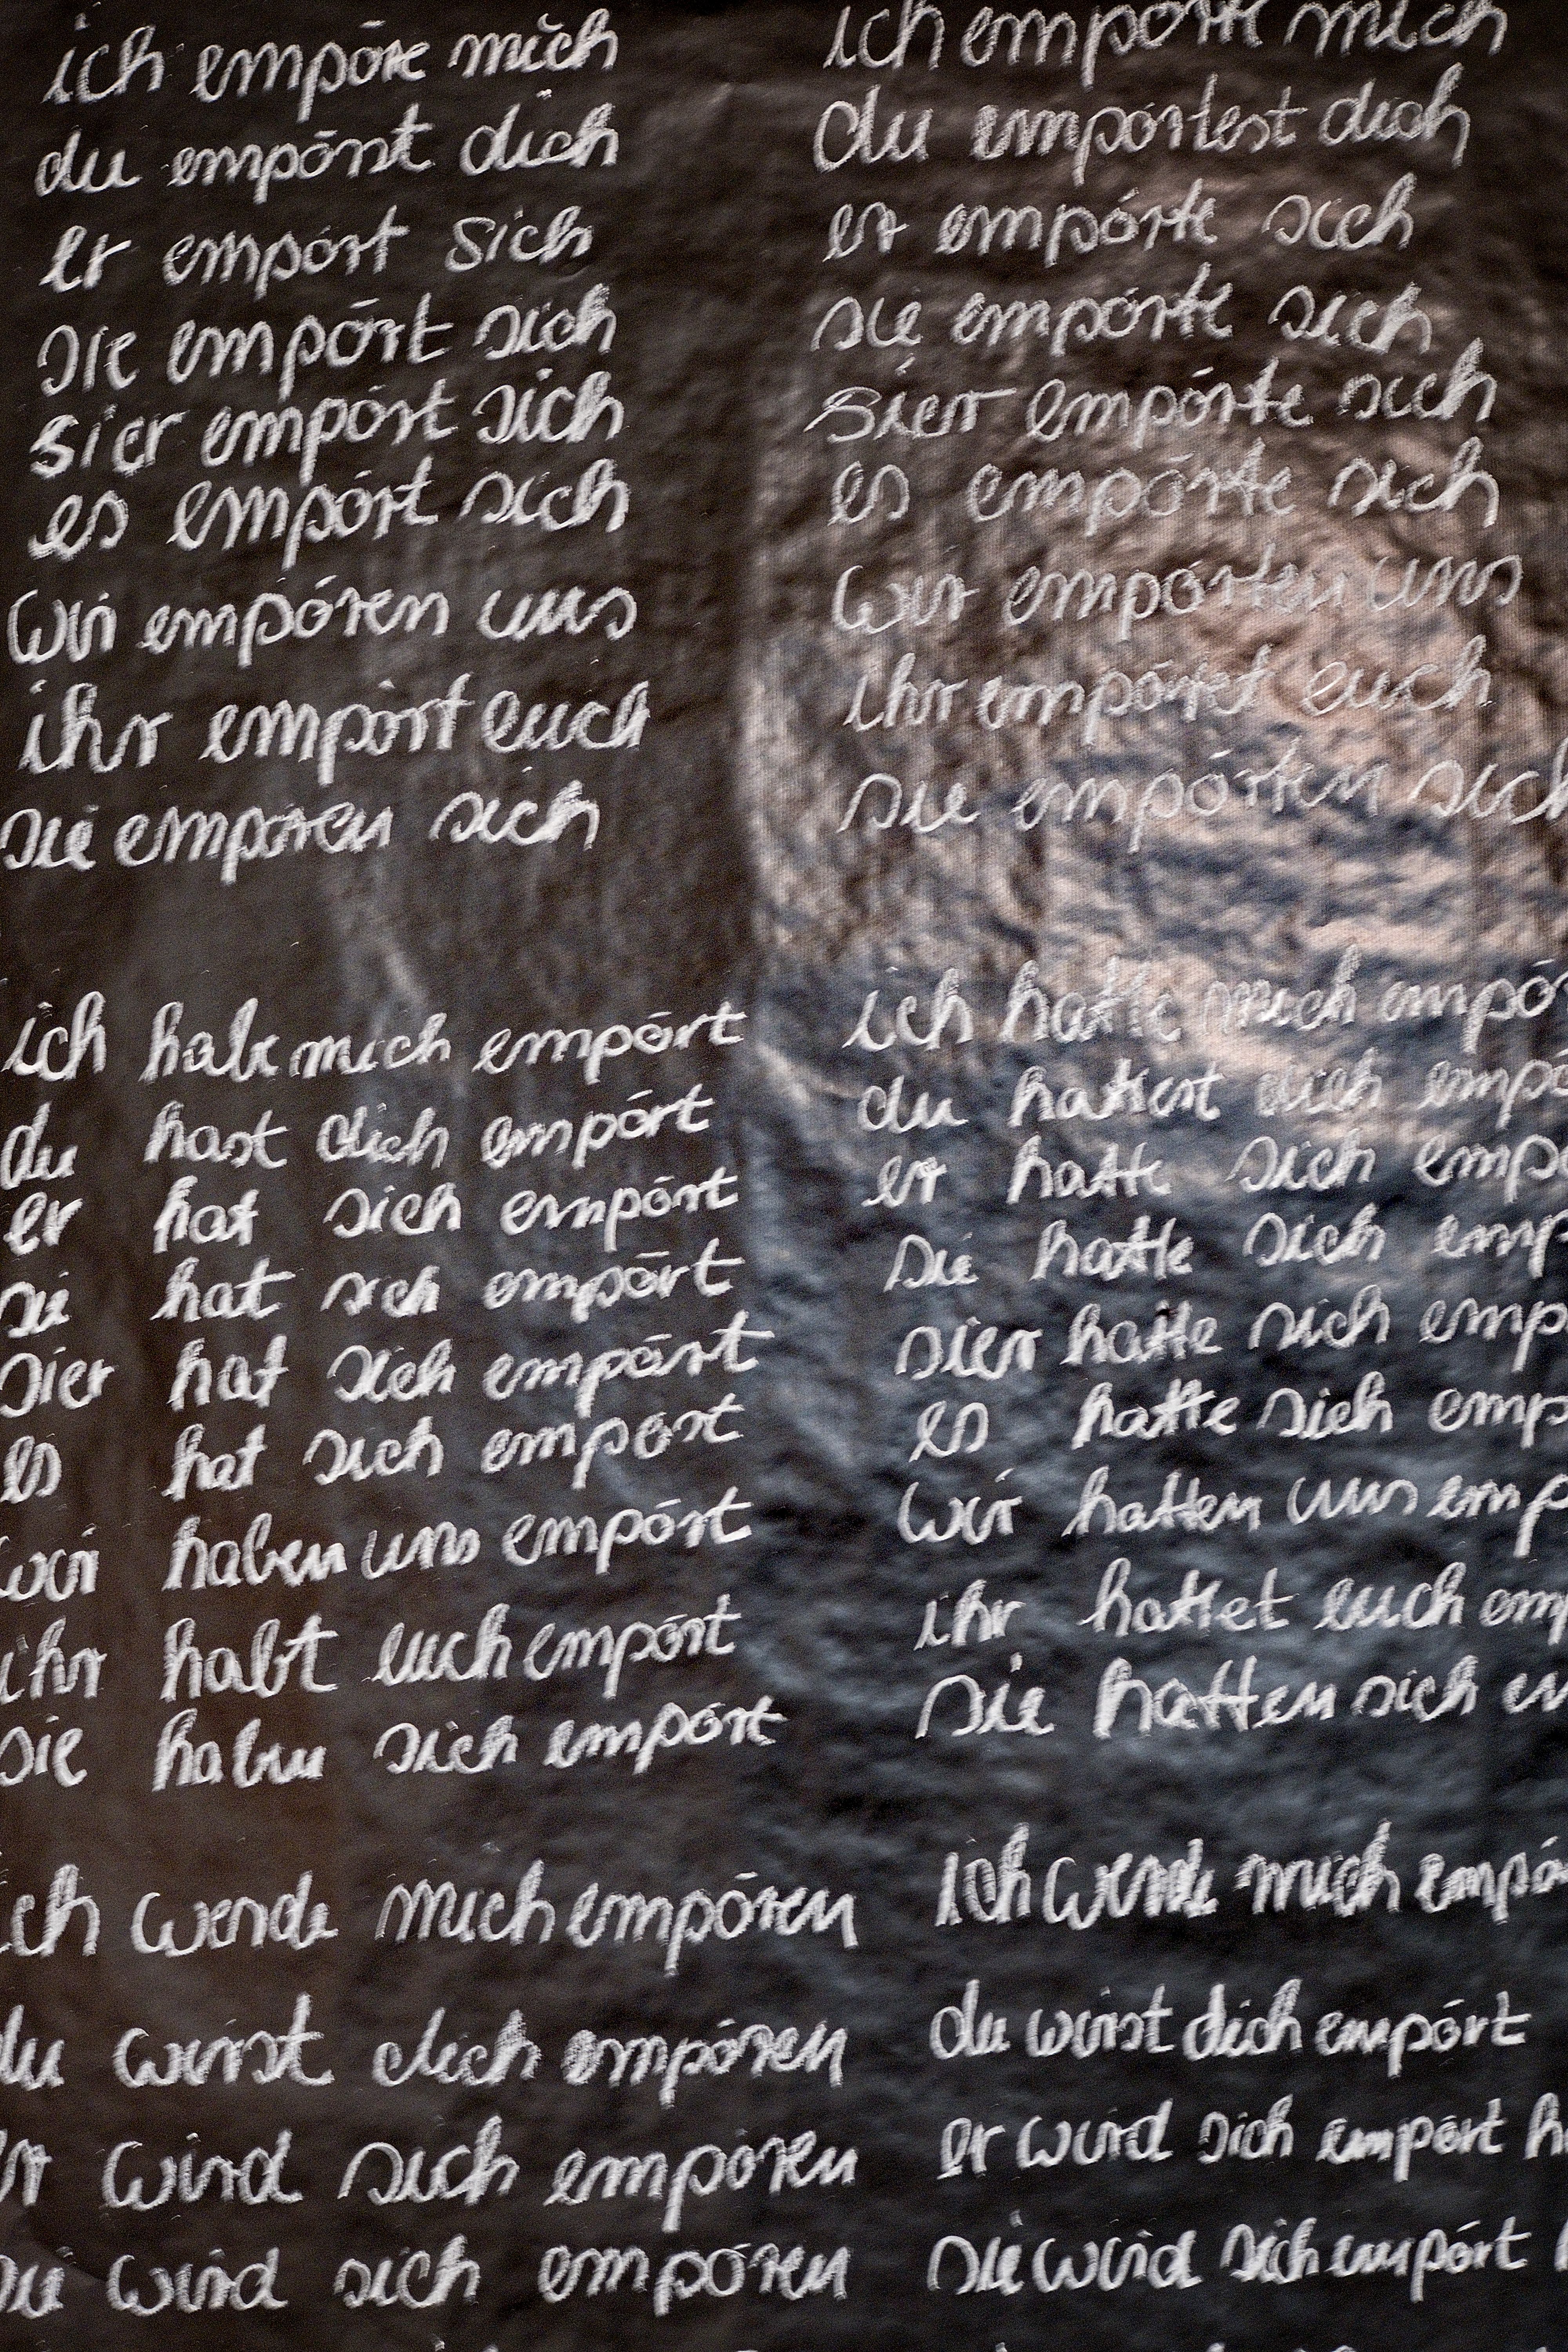 ich empöre mich
du empörst dich
er empört sich
sie empört sich
sier empört sich
es empört sich
wir empören uns
ihr empört euch
sie empören sich
ich empörte mich
du empörtest dich
er empörte sich
sie empörte sich
sier empörte sich
es empörte sich
wir empörten uns
ihr empörtet euch
sie empörten sich
ich habe mich empört
du hast dich empört
er hat sich empört
sie hat sich empört
sier hat sich empört
es hat sich empört
wir haben uns empört
ihr habt euch empört
sie haben sich empört
ich hatte mich empö
du hattest dich empö
er hatte sich emp
sie hatte sich emp
sier hatte sich emp
es hatte sich emp
wir hatten uns emp
ihr hattet euch em
sie hatten sich em
ich werde mich empören
du wirst dich empören
er wird sich empören
sie wird sich empören
Ich werde mich empö
du wirst dich empört
er wird sich empört h
sie wird sich empört